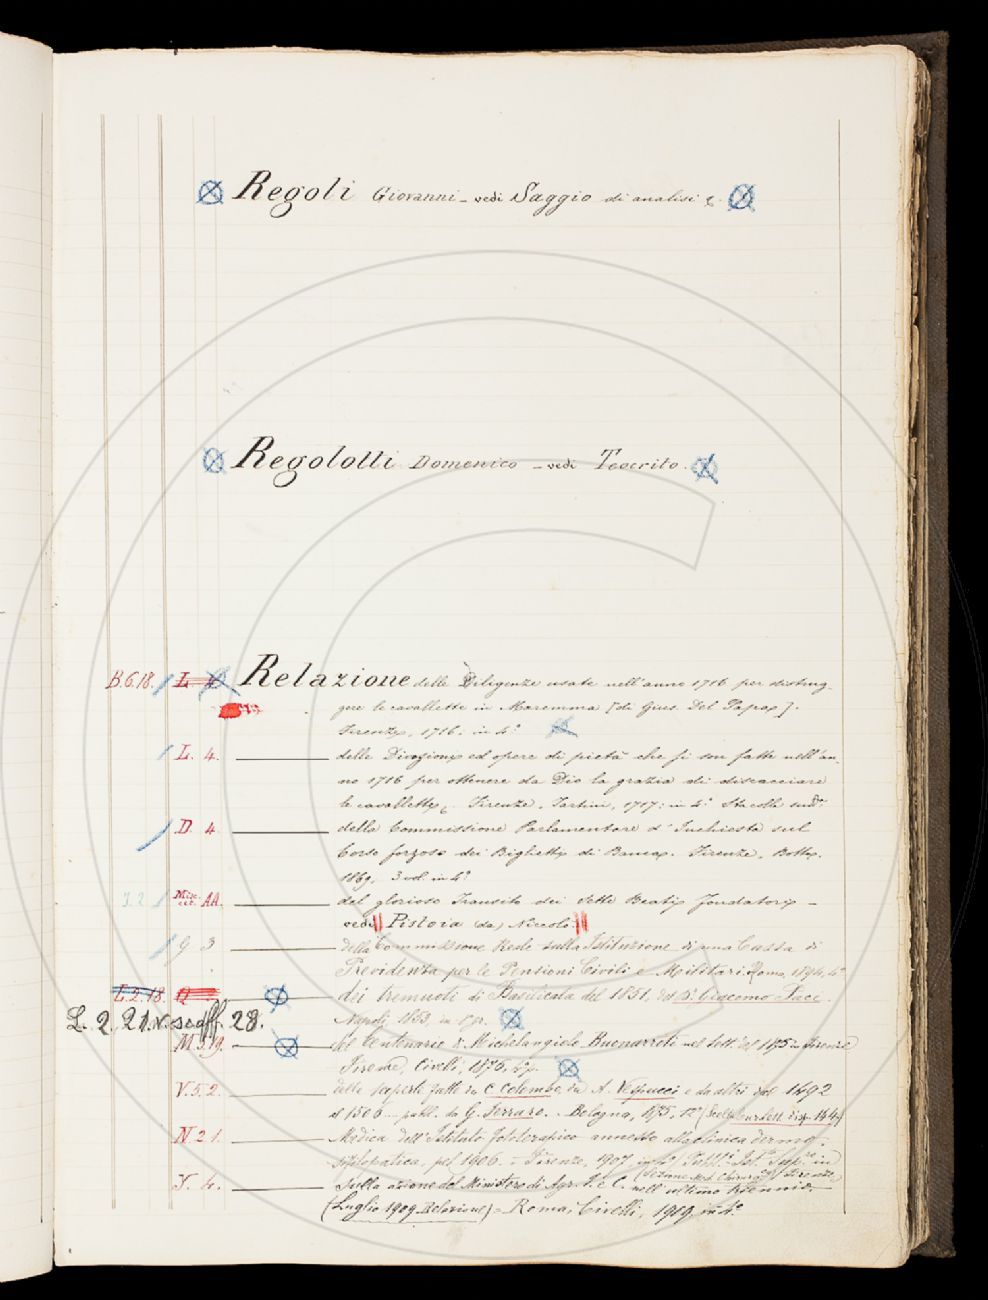 Regoli Giovanni - vedi Saggio di analisi &.
Regolotti Domenico - vedi Teocrito.
B.6.18. L. Relazione delle Diligenze usate nell'anno 1716 per distrug-
gere le cavallette in Maremma [di Gius. Del Papa].
Firenze, 1716; in 4.°
L. 4. delle Divozioni ed opere di pietà che si son fatte nell'an-
no 1716 per ottenere da Dio la grazia di discacciare
le cavallette. Firenze, Tartini, 1717; in 4.°
D. 4 della Commissione Parlamentare d'Inchiesta sul
Corso forzoso dei Biglietti di Banca. Firenze, Botta,
1869, 3 vol. in 4.°
J. 2 Misc. AA. del glorioso Transito dei Sette Beati fondatori -
vedi Pistoia (da) Niccolò.
G 3 della Commissione Reale sulla Istituzione di una Cassa di
Previdenza per le Pensioni Civili e Militari Roma, 1894, 4.°
L.2.18. Q dei tremuoti di Basilicata del 1851, del Giacomo Paci.
L. 2. 21. v. scaff. 28. Napoli 1853, in
M 5.19. del Centenario di Michelangiolo Buonarroti nel Sett. del 1875 in Firenze
Firenze, Civelli, 1876,
V.5.2. delle scoperte fatte da C. Colombo, da A. Vespucci e da altri dal 1492
al 1506 - pubbl. da G. Ferraro. - Bologna, 1875, 12.° (Scelta
N 2 1. Medica dell'Istituto fototerapico annesso alla clinica dermo-
sifilopatica, pel 1906. - Firenze, 1907
(Sezione Med. Chirurg. Firenze)
Y. 4. Sulla azione del Ministero di Agr. I. e C. nell'ultimo triennio.
(Luglio 1909 Relazione) - Roma, Civelli, 1909, in 4.°